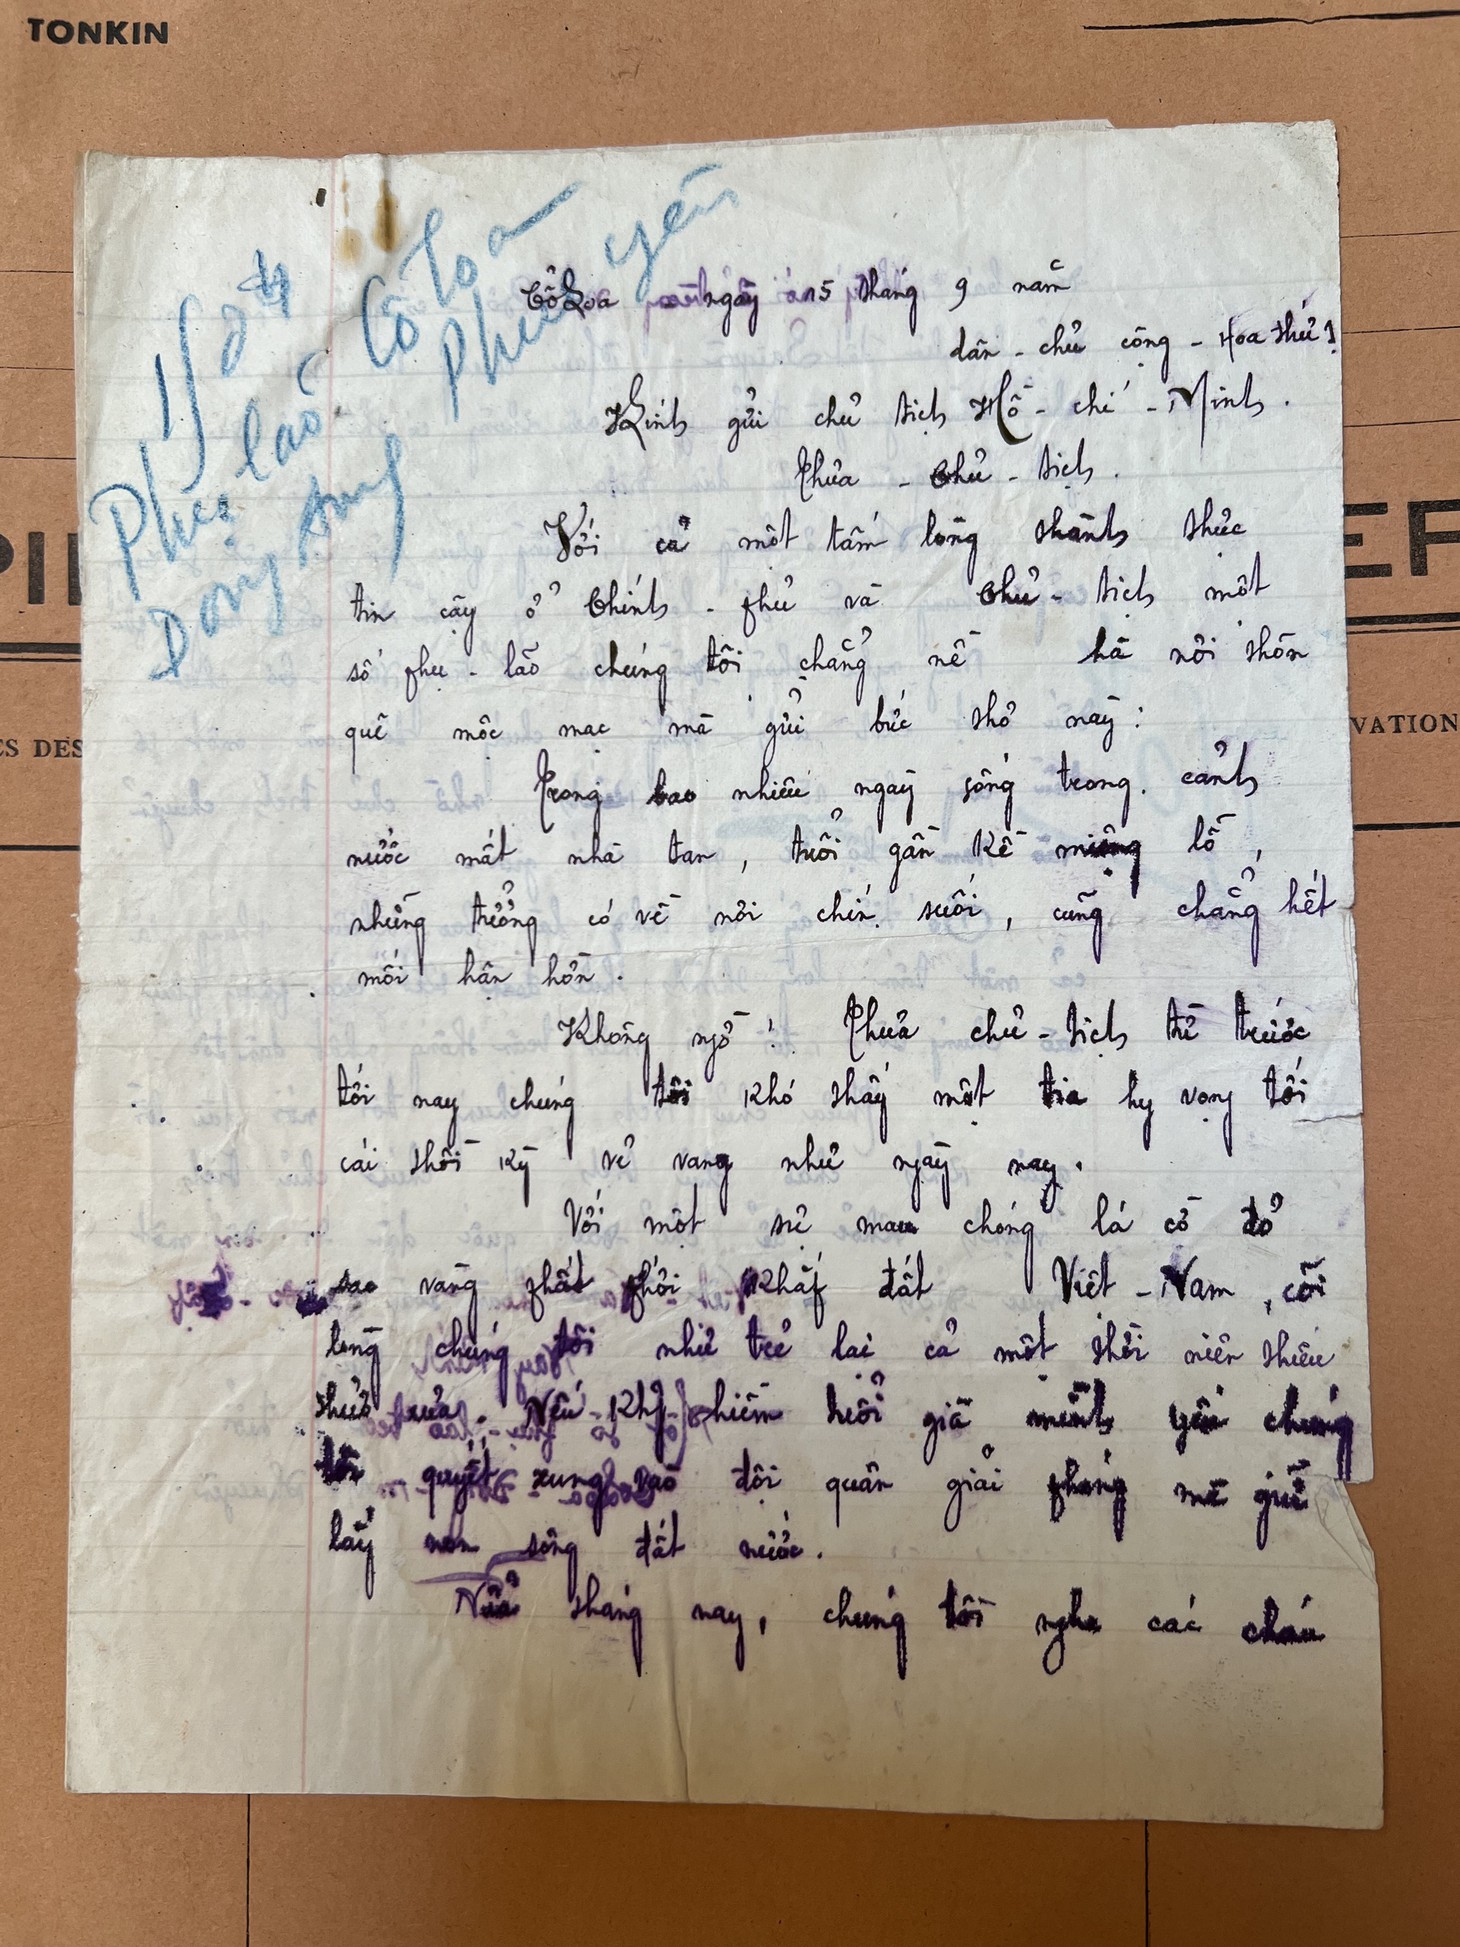 TONKIN
Số 4
Cô loa
Phúc yên
Phụ lão
Dong Anh
Cổ Loa ngày 15 tháng 9 năm
dân - chủ cộng - Hoa thứ 1
Kính gửi chủ tịch Hồ - chí - Minh.
Thưa - Chủ - tịch.
Với cả một tấm lòng thành thực
tin cậy ở Chính - phủ và Chủ - tịch một
số phụ - lão chúng tôi chẳng nề hà nơi thôn
quê mộc mạc mà gửi bức thơ này:
Trong bao nhiêu ngày sống trong cảnh
nước mất nhà tan, tuổi gần kề miệng lỗ,
những tưởng có về nơi chín suối, cũng chẳng hết
mối hận hờn.
Không ngờ! Thưa chủ - tịch từ trước
tới nay chúng tôi khó thấy một tia hy vọng tới
cái thời kỳ vẻ vang như ngày nay.
Với một sự mau chóng lá cờ đỏ
sao vàng phất phới khắp đất Việt - Nam, cõi
lòng chúng tôi như trẻ lại cả một thời niên thiếu
thuở xưa. Nếu hiềm tuổi già mình yếu chúng
tôi quyết xung vào đội quân giải phóng mà giữ
lấy non sông đất nước.
Nửa tháng nay, chúng tôi nghe các cháu
ES DES
VATION